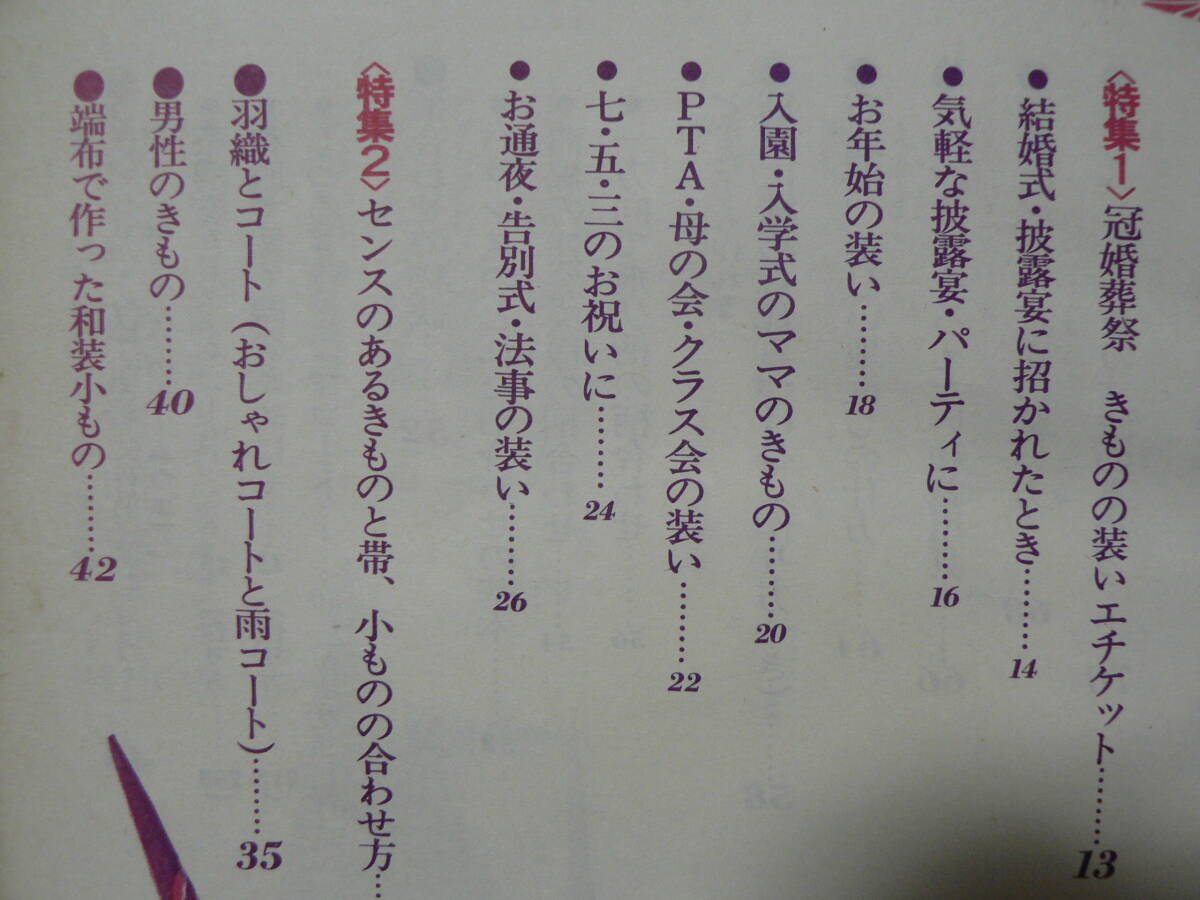 〈特集1〉冠婚葬祭　きものの装いエチケット………13
●結婚式・披露宴に招かれたとき………14
●気軽な披露宴・パーティに………16
●お年始の装い………18
●入園・入学式のママのきもの………20
●PTA・母の会・クラス会の装い………22
●七・五・三のお祝いに………24
●お通夜・告別式・法事の装い………26
〈特集2〉センスのあるきものと帯、小ものの合わせ方…
●羽織とコート（おしゃれコートと雨コート）………35
●男性のきもの………40
●端布で作った和装小もの………42